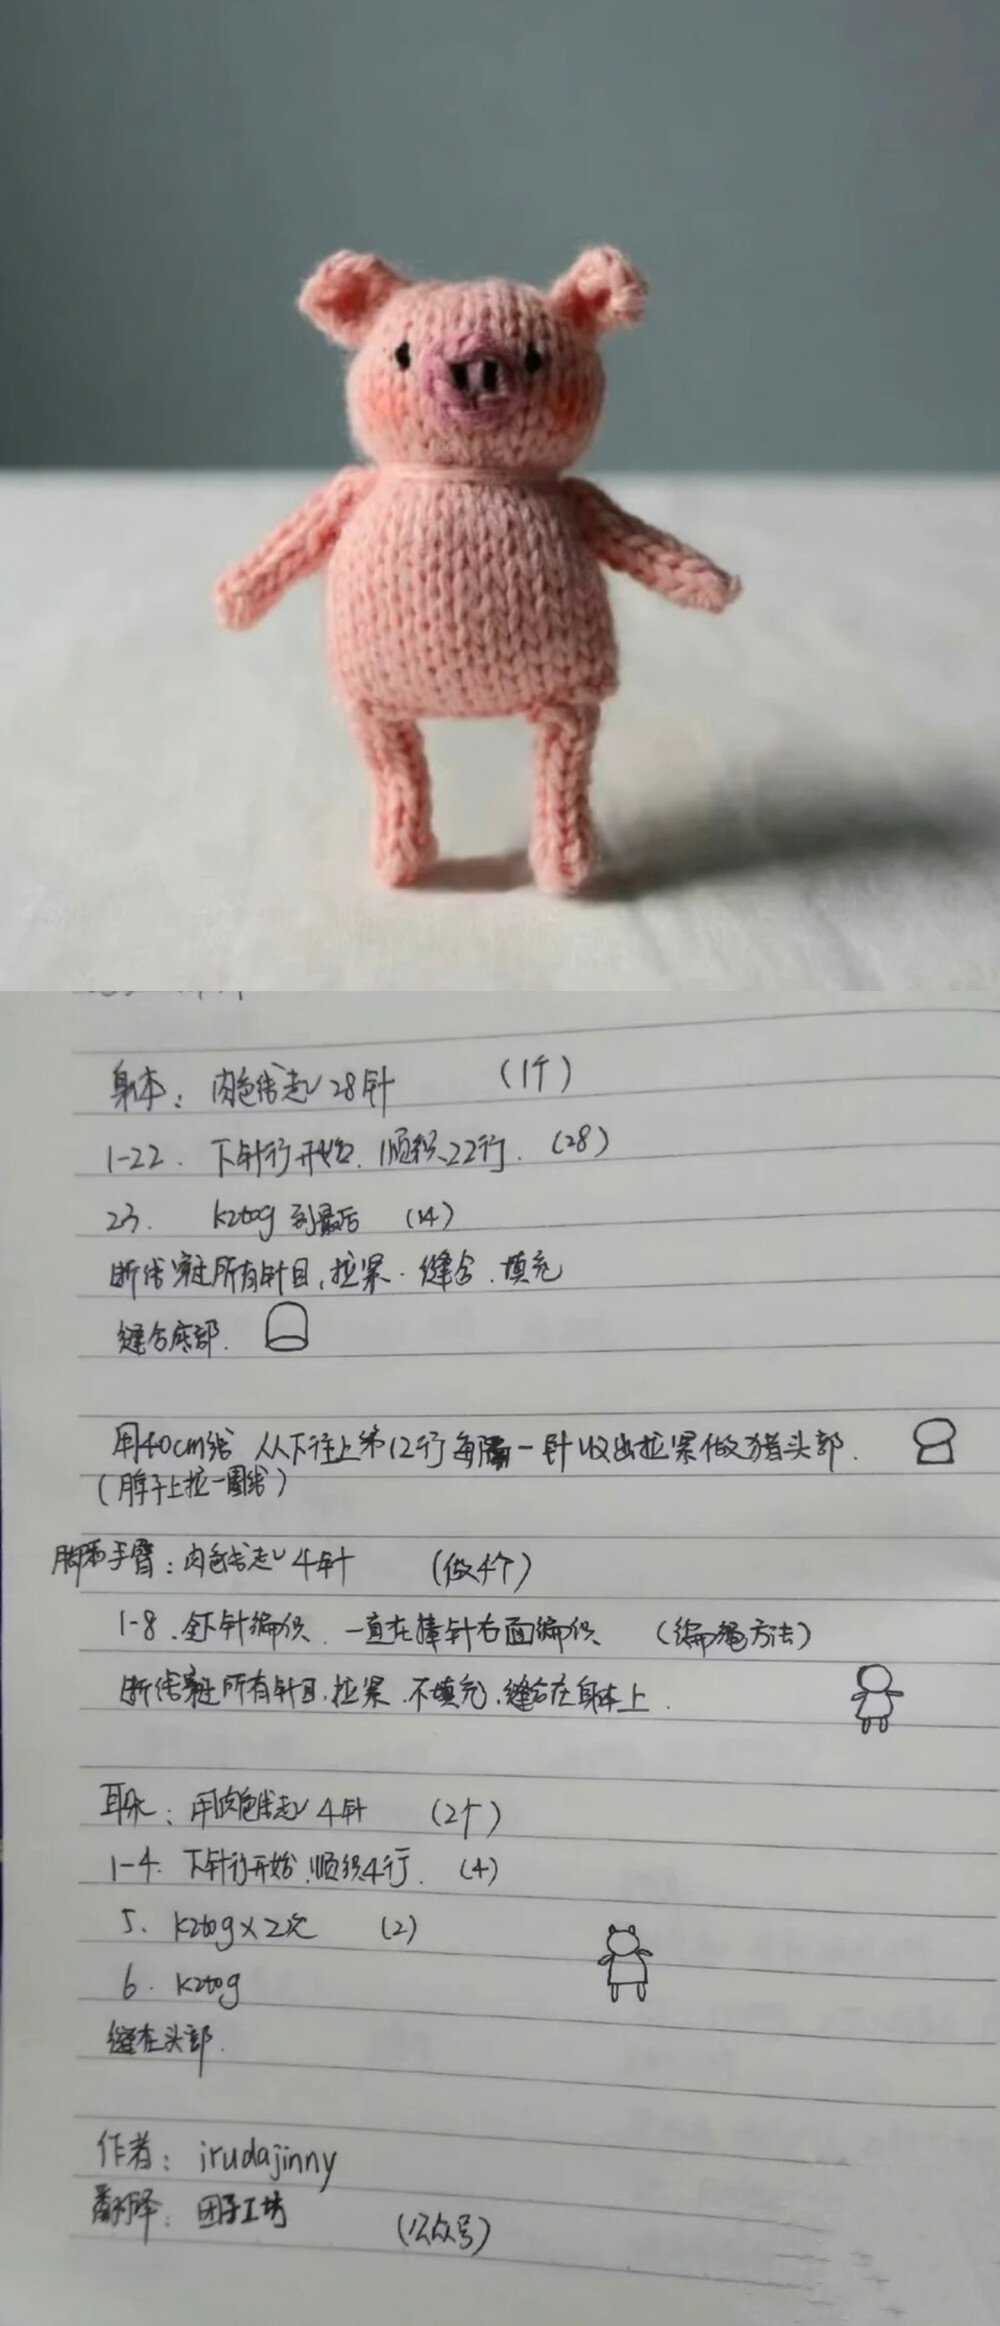 身体: 肉色线起 28针 (1个)
1-22. 下针行开始. 顺织22行. (28)
23. k2tog 到最后 (14)
断线穿过所有针目, 拉紧. 缝合. 填充
缝合底部.
用40cm线 从下往上第12行每隔一针 收出拉紧做猪头部.
(脖子上拉一圈线)
脚和手臂: 肉色线起 4针 (做4个)
1-8. 全下针编织. 一直在棒针右面编织 (编绳方法)
断线穿过所有针目, 拉紧. 不填充, 缝合在身体上.
耳朵: 用肉色线起 4针 (2个)
1-4. 下针行开始. 顺织4行. (4)
5. k2tog×2次 (2)
6. k2tog
缝在头部.
作者: irudajinny
翻译: 团子工坊 (公众号)